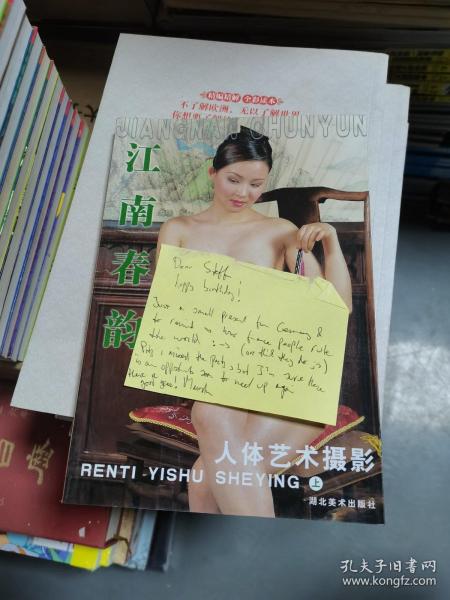 精编精解 全彩读本
不了解欧洲，无以了解世界
JIANGNAN CHUNYUN
江南春韵
Dear Steff
happy birthday!
Just a small present from Germany &
to remind us
people rule
the world :-) (or think they do ;-))
I missed the party but I'm sure there
is an opportunity soon to meet up again
Have a
人体艺术摄影
RENTI YISHU SHEYING 上
湖北美术出版社
孔夫子旧书网
www.kongfz.com